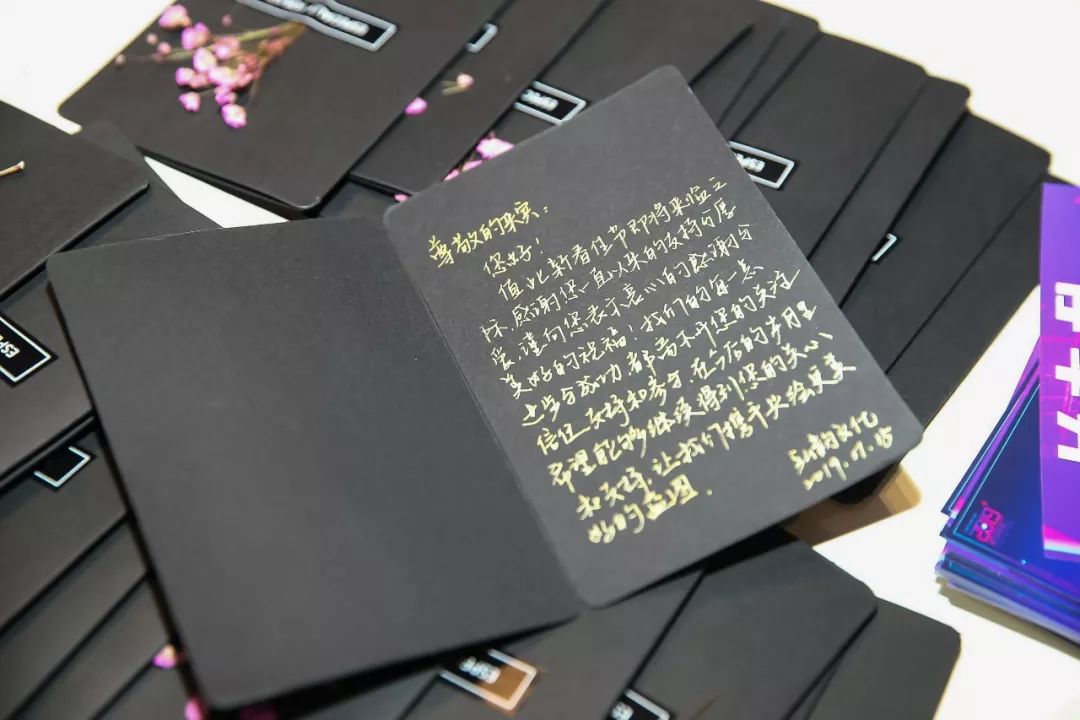 尊敬的来宾：
您好！
值此新春佳节即将来临之
际，感谢您一直以来的支持与厚
爱，谨向您表示衷心的感谢与
美好的祝福！我们的每一点
进步与成功都离不开您的关注、
信任、支持和参与，在今后的岁月里
希望能够继续得到您的关心
和支持，让我们携手共绘更美
好的蓝图。
韵文化
2019.01.15
ESPC
ESP